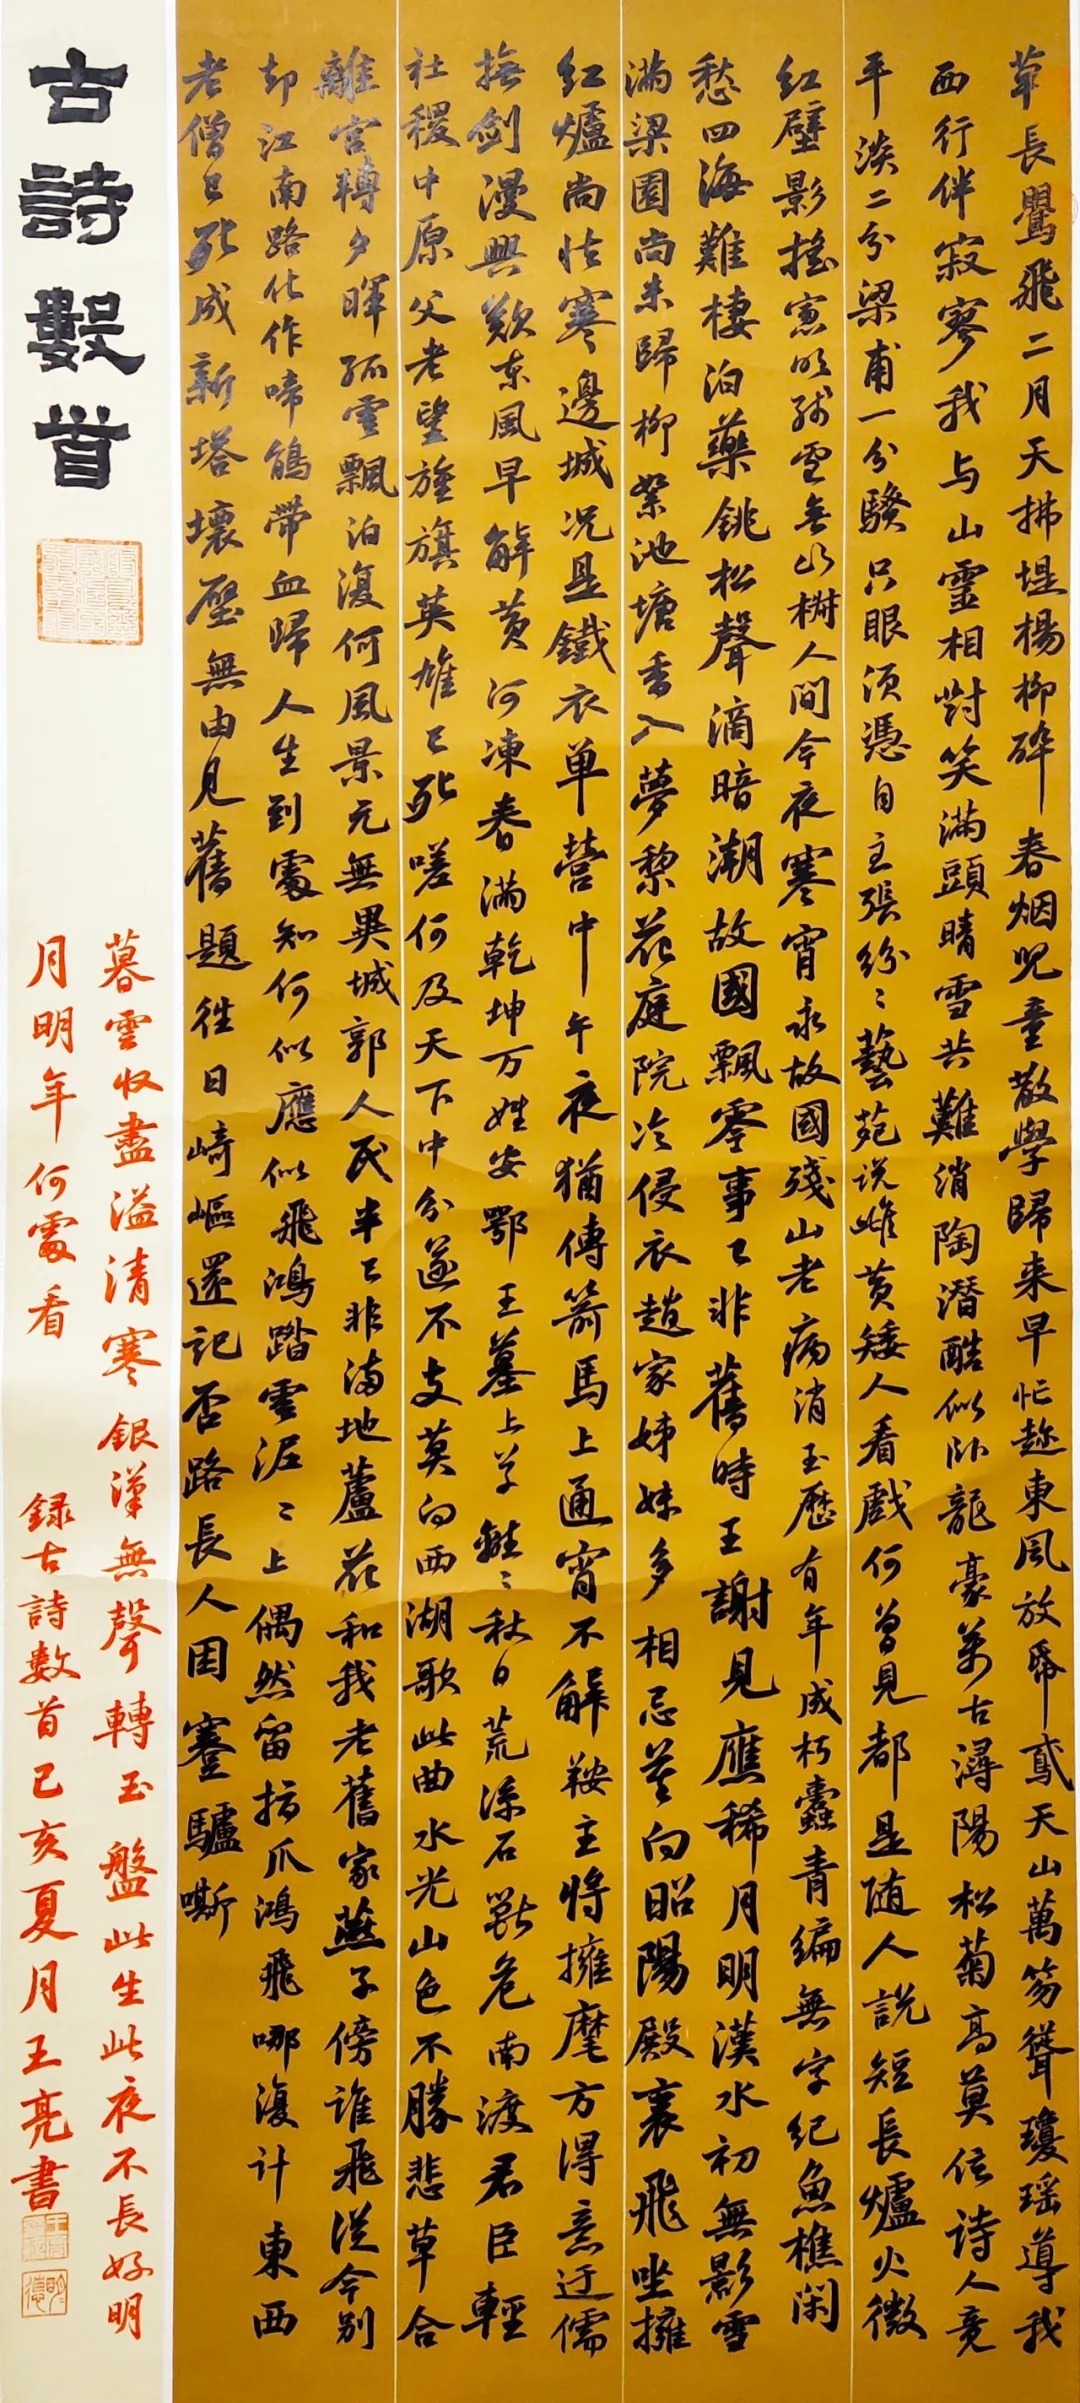 古詩數首
草長鶯飛二月天拂堤楊柳醉春烟兒童散學歸来早忙趁東風放帋鳶天山萬笏聳瓊瑶導我
西行伴寂寥我与山靈相對笑滿頭晴雪共難消陶潛酷似卧龍豪萬古潯陽松菊高莫信詩人竟
平淡二分梁甫一分騷只眼須憑自主張紛〻藝苑説雌黄矮人看戲何曾見都是随人説短長爐火微
紅壁影摇窗明殘雪無行樹人間今夜寒宵永故國殘山老病消玉歷有年成朽蠹青編無字紀魚樵閑
愁四海難棲泊藥銚松聲滴暗潮故國飄零事已非舊時王謝見應稀月明漢水初無影雪
滿梁園尚未歸柳絮池塘香入夢梨花庭院冷侵衣趙家姊妹多相忌莫向昭陽殿裏飛坐擁
紅爐尚怯寒邊城况是鐵衣单營中午夜猶傳箭馬上通宵不解鞍主將擁麾方得意迂儒
撫劍漫興歎東風早解黄河凍春滿乾坤万姓安鄂王墓上草離〻秋日荒涼石獸危南渡君臣輕
社稷中原父老望旌旗英雄已死嗟何及天下中分遂不支莫向西湖歌此曲水光山色不勝悲草合
離宫轉夕暉孤雲飄泊復何風景元無異城郭人民半已非滿地蘆花和我老舊家燕子傍誰飛從今别
却江南路化作啼鵑帶血歸人生到處知何似應似飛鴻踏雪泥〻上偶然留指爪鴻飛哪復計東西
老僧已死成新塔壞壁無由見舊題往日崎嶇還記否路長人困蹇驢嘶
暮雲收盡溢清寒銀漢無聲轉玉盤此生此夜不長好明
月明年何處看 録古詩數首己亥夏月王亮書